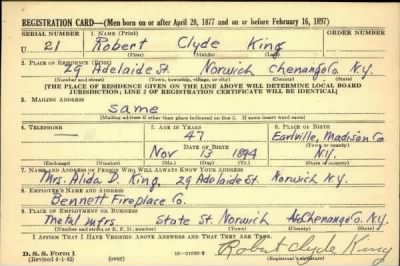 REGISTRATION CARD—(Men born on or after April 28, 1877 and on or before February 16, 1897)
SERIAL NUMBER 1. NAME (Print) ORDER NUMBER
U 21 Robert Clyde King
(First) (Middle) (Last)
2. PLACE OF RESIDENCE (Print)
29 Adelaide St. Norwich Chenango Co N.Y.
(Number and street) (Town, township, village, or city) (County) (State)
[THE PLACE OF RESIDENCE GIVEN ON THE LINE ABOVE WILL DETERMINE LOCAL BOARD
JURISDICTION; LINE 2 OF REGISTRATION CERTIFICATE WILL BE IDENTICAL]
3. MAILING ADDRESS
same
[Mailing address if other than place indicated on line 2. If same insert word same]
4. TELEPHONE 5. AGE IN YEARS 6. PLACE OF BIRTH
— 47 Earlville, Madison Co
DATE OF BIRTH (Town or county)
Nov 13 1894 N.Y.
(Exchange) (Number) (Mo.) (Day) (Yr.) (State or country)
7. NAME AND ADDRESS OF PERSON WHO WILL ALWAYS KNOW YOUR ADDRESS
Mrs. Alida D. King, 29 Adelaide St. Norwich N.Y.
8. EMPLOYER'S NAME AND ADDRESS
Bennett Fireplace Co.
9. PLACE OF EMPLOYMENT OR BUSINESS
metal mfrs. State St. Norwich Chenango Co. N.Y.
(Number and street or R. F. D. number) (Town) (County) (State)
I AFFIRM THAT I HAVE VERIFIED ABOVE ANSWERS AND THAT THEY ARE TRUE.
D. S. S. Form 1 Robert Clyde King
(Revised 4-1-42) (over) 16—21630-2 (Registrant's signature)